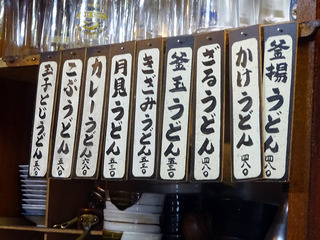 釜揚うどん 四八〇
かけうどん 四八〇
ざるうどん 四八〇
釜玉うどん 五三〇
きざみうどん 五三〇
月見うどん 五三〇
カレーうどん 六八〇
こぶうどん 五八〇
玉子とじうどん 五八〇